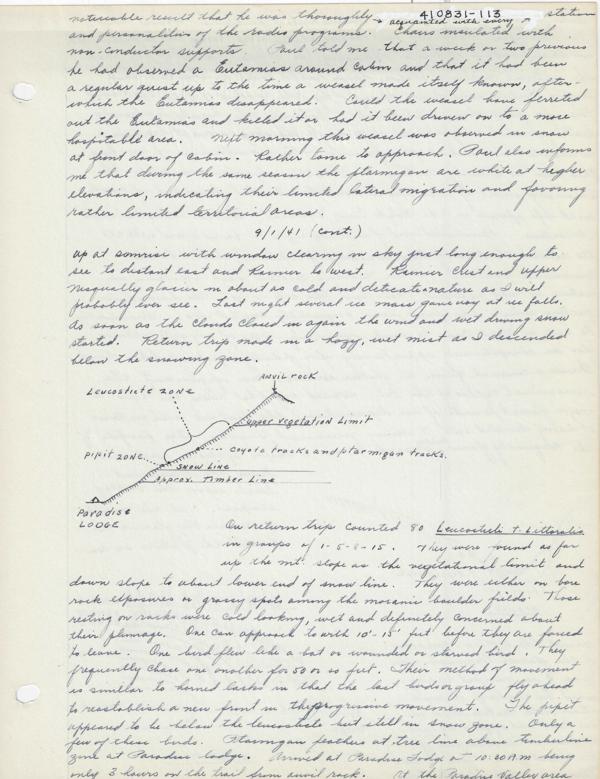 noticeable result that he was thoroughly acquainted with every station
410831-113
and personalities of the radio programs. Chairs insulated with
non-conductor supports. Paul told me that a week or two previous
he had observed a Eutamias around cabin and that it had been
a regular guest up to the time a weasel made itself known, after-
which the Eutamias disappeared. Could the weasel have ferreted
out the Eutamias and killed it or had it been driven on to a more
hospitable area. Next morning this weasel was observed in snow
at front door of cabin. Rather tame to approach. Paul also informs
me that during the same season the ptarmigan are white at higher
elevations, indicating their limited lateral migration and favoring
rather limited territorial areas.
9/1/41 (cont.)
up at sunrise with window clearing in sky just long enough to
see to distant east and Rainier to west. Rainier crest and upper
Nesqually glacier in about as cold and delicate nature as I will
probably ever see. Last night several ice mass gave way at ice falls.
As soon as the clouds closed in again the wind and wet driving snow
started. Return trip made in a hazy, wet mist as I descended
below the snowing zone.
ANVIL ROCK
Leucosticte ZONE
upper vegetation Limit
coyote tracks and ptarmigan tracks.
Pipit ZONE
SNOW LINE
approx. Timber Line
Paradise
LODGE
On return trip counted 80 Leucosticte t. littoralis
in groups of 1-5-8-15. They were found as far
up the mt. slope as the vegetational limit and
down slope to about lower end of snow line. They were either on bare
rock exposures or grassy spots among the morainic boulder fields. Those
resting on rocks were cold looking, wet and definitely concerned about
their plumage. One can approach to with 10'-15' feet before they are forced
to leave. One bird flew like a bat or wounded or starved bird. They
frequently chase one another for 50 or so feet. Their method of movement
is similar to horned larks in that the last birds or group fly ahead
to reestablish a new front in the progressive movement. The pipit
appeared to be below the leucosticte but still in snow zone. Only a
few of these birds. Ptarmigan feathers at tree line above timberline
zone at Paradise lodge. Arrived at Paradise Lodge at 10:20 AM being
only 3 hours on the trail from anvil rock. At the Paradise Valley area